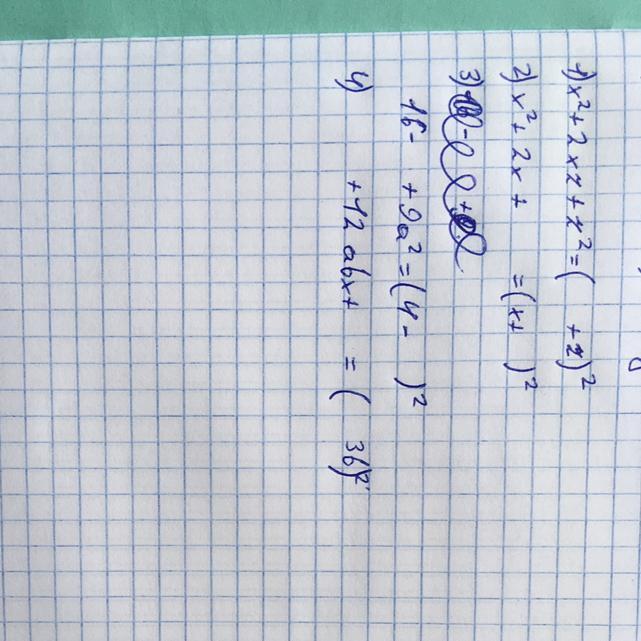 1) x² + 2xz + z² = ( + z)²
2) x² + 2x + = (x+ )²
3)
16 - + 9a² = (4 - )²
4) + 12abx + = ( 3b)²